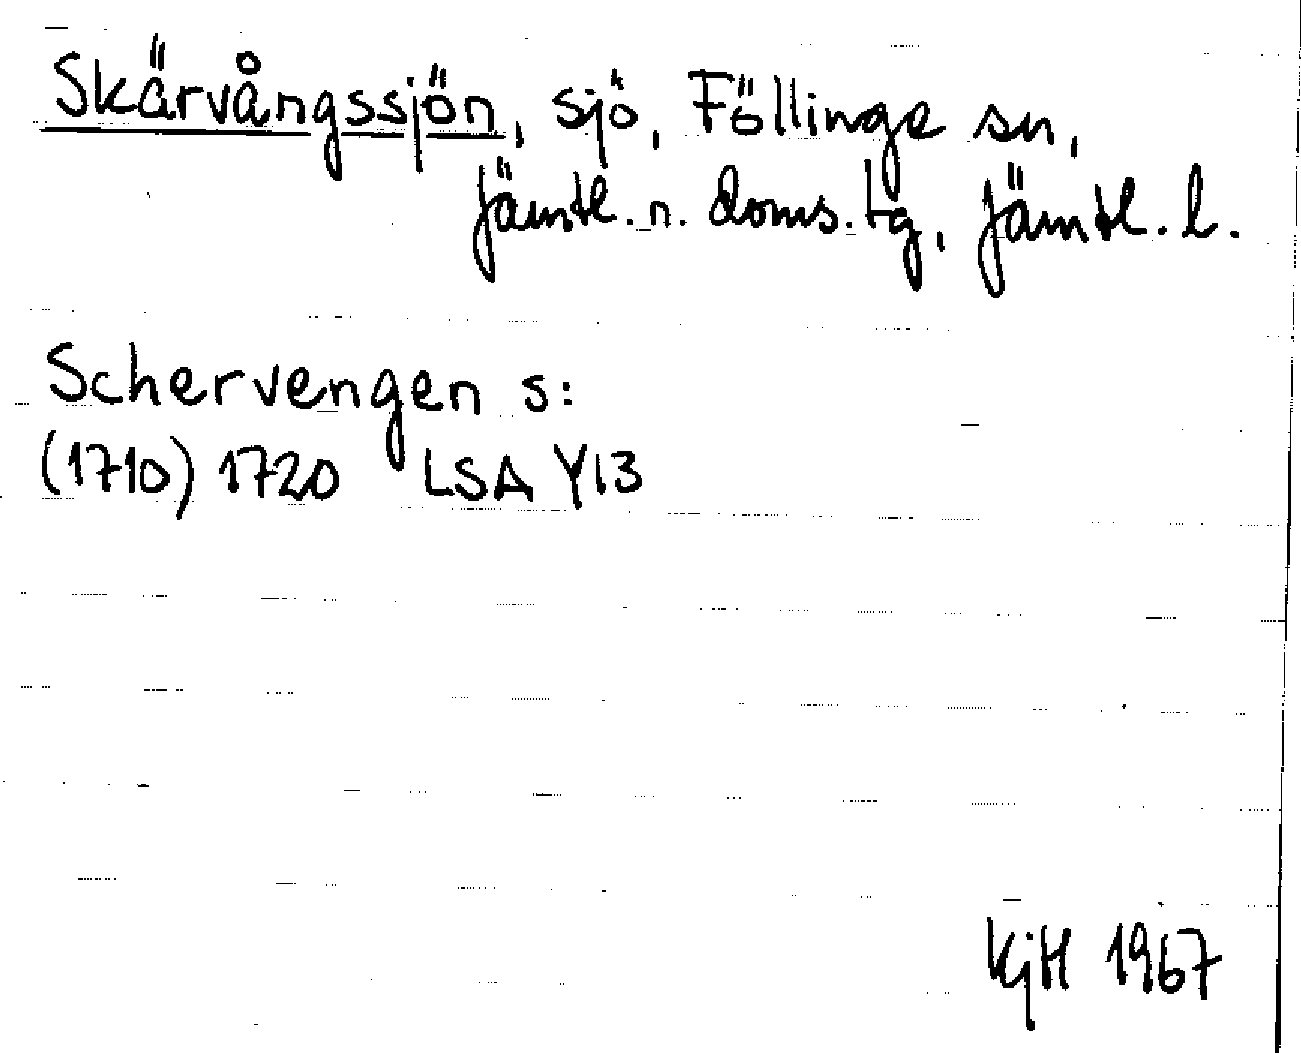 Skärvångssjön, sjö, Föllinge sn,
Jämtl. n. doms. tg, Jämtl. l.
Schervengen s:
(1710) 1720 LSA Y13
KjH 1967